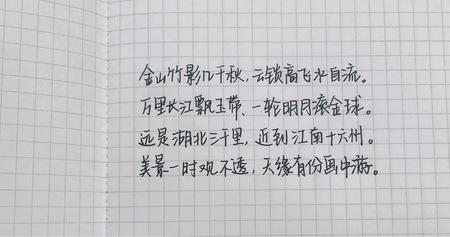 金山竹影几千秋，云锁高飞水自流。
万里长江飘玉带、一轮明月滚金球。
远是湖北三千里，近到江南十六州。
美景一时观不透，天缘有份画中游。